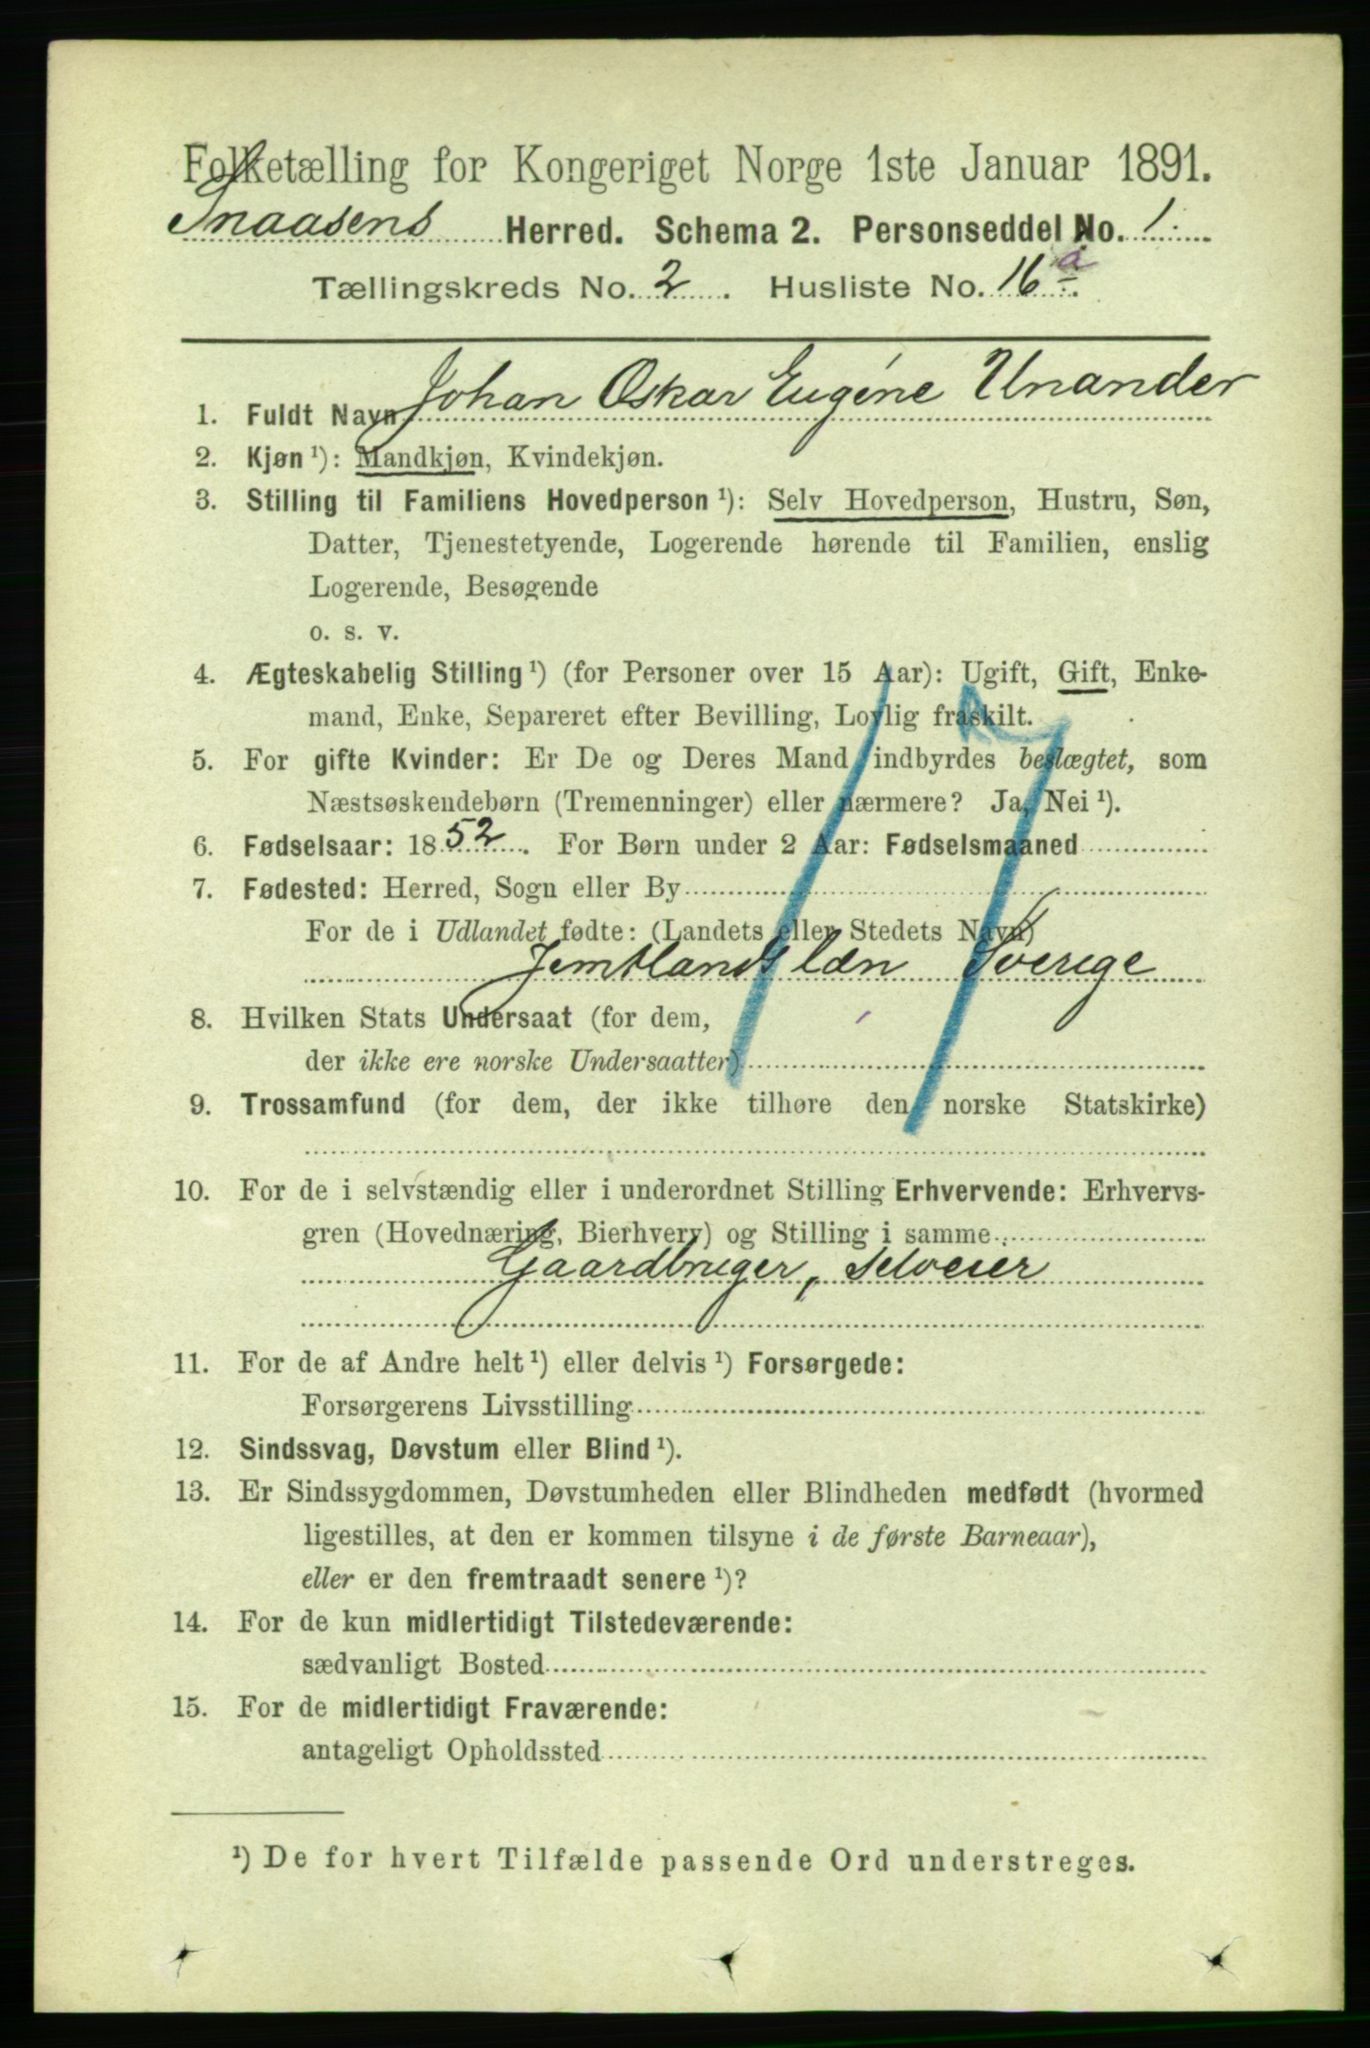 Folketælling for Kongeriget Norge 1ste Januar 1891.
Snaasens Herred. Schema 2. Personseddel No. 1.
Tællingskreds No. 2. Husliste No. 16 a.
1. Fuldt Navn Johan Oskar Eugéne Unander
2. Kjøn ¹): Mandkjøn, Kvindekjøn.
3. Stilling til Familiens Hovedperson ¹): Selv Hovedperson, Hustru, Søn,
Datter, Tjenestetyende, Logerende hørende til Familien, enslig
Logerende, Besøgende
o. s. v.
4. Ægteskabelig Stilling ¹) (for Personer over 15 Aar): Ugift, Gift, Enke-
mand, Enke, Separeret efter Bevilling, Lovlig fraskilt.
5. For gifte Kvinder: Er De og Deres Mand indbyrdes beslægtet, som
Næstsøskendebørn (Tremenninger) eller nærmere? Ja, Nei ¹).
6. Fødselsaar: 1852. For Børn under 2 Aar: Fødselsmaaned
7. Fødested: Herred, Sogn eller By
For de i Udlandet fødte: (Landets eller Stedets Navn)
Jemtlands læn Sverige
8. Hvilken Stats Undersaat (for dem,
der ikke ere norske Undersaatter)
9. Trossamfund (for dem, der ikke tilhøre den norske Statskirke)
10. For de i selvstændig eller i underordnet Stilling Erhvervende: Erhvervs-
gren (Hovednæring, Bierhverv) og Stilling i samme
Gaardbruger, Selveier
11. For de af Andre helt ¹) eller delvis ¹) Forsørgede:
Forsørgerens Livsstilling
12. Sindssvag, Døvstum eller Blind ¹).
13. Er Sindssygdommen, Døvstumheden eller Blindheden medfødt (hvormed
ligestilles, at den er kommen tilsyne i de første Barneaar),
eller er den fremtraadt senere ¹)?
14. For de kun midlertidigt Tilstedeværende:
sædvanligt Bosted
15. For de midlertidigt Fraværende:
antageligt Opholdssted
¹) De for hvert Tilfælde passende Ord understreges.